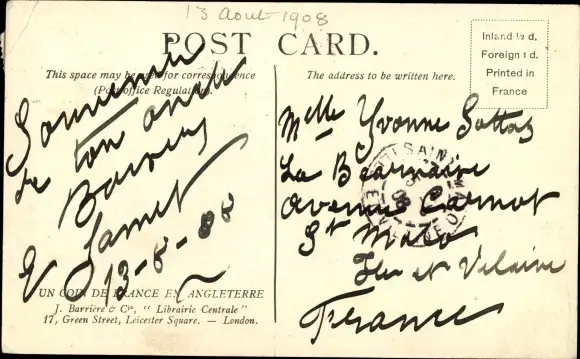 13 Aout 1908
POST CARD.
This space may be used for correspondence
(Post office Regulation).
The address to be written here.
Inland ½ d.
Foreign 1 d.
Printed in
France
Souvenir
de ton oncle
13-8-08
Melle Yvonne
La Béarnaise
avenue Carnot
St Malo
Ille et Vilaine
France
UN COIN DE FRANCE EN ANGLETERRE
J. Barrière & Cie, " Librairie Centrale "
17, Green Street, Leicester Square. — London.